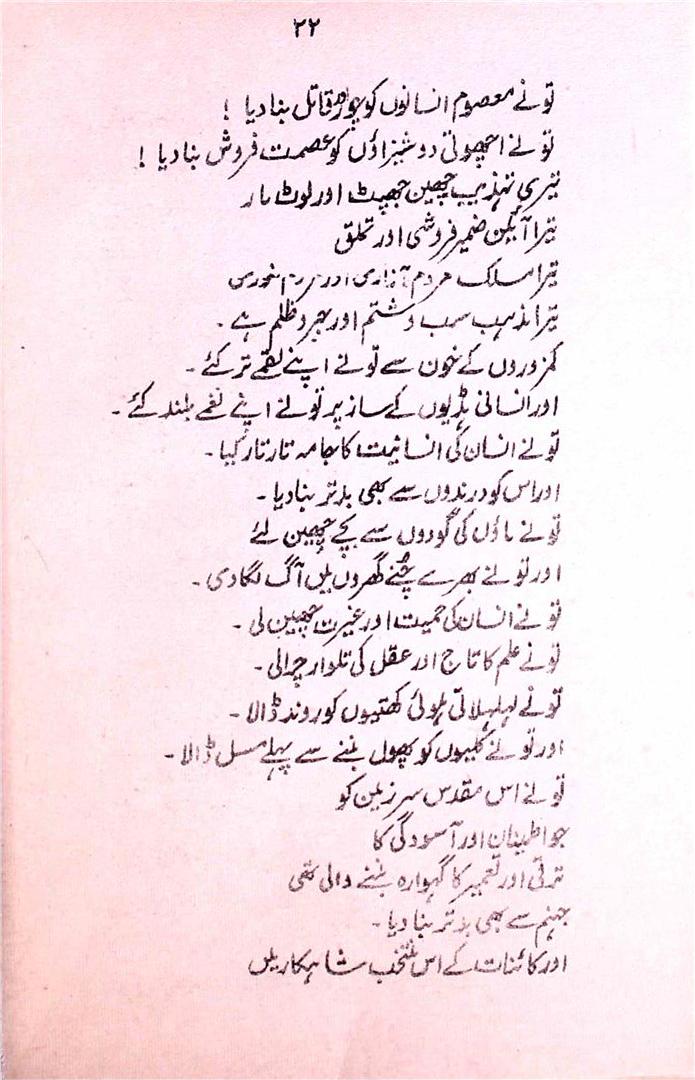 ۲۲
تو نے معصوم انسانوں کو چور اور قاتل بنا دیا !
تو نے اچھوتی دوشیزاؤں کو عصمت فروش بنا دیا !
تیری تہذیب چھین جھپٹ اور لوٹ مار
تیرا آئین ضمیر فروشی اور تملق
تیرا مسلک مردم آزاری اور مردم خوری
تیرا مذہب سب و شتم اور جبر و ظلم ہے ۔
کمزوروں کے خون سے تو نے اپنے لقمے تر کئے ۔
اور انسانی ہڈیوں کے ساز پر تو نے اپنے نغمے بلند کئے ۔
تو نے انسان کی انسانیت کا جامہ تار تار کیا ۔
اور اس کو درندوں سے بھی بدتر بنا دیا ۔
تو نے ماؤں کی گودوں سے بچے چھین لئے
اور تو نے بھرے چُنے گھروں میں آگ لگا دی ۔
تو نے انسان کی حمیت اور غیرت چھین لی ۔
تو نے علم کا تاج اور عقل کی تلوار چرا لی ۔
تو نے لہلہلاتی ہوئی کھتیوں کو روند ڈالا ۔
اور تو نے کلیوں کو پھول بننے سے پہلے مسل ڈالا ۔
تو نے اس مقدس سرزمین کو
جو اطمینان اور آسودگی کا
ترقی اور تعمیر کا گہوارہ بننے والی تھی
جہنم سے بھی بدتر بنا دیا ۔
اور کائنات کے اس منتخب شاہکار میں